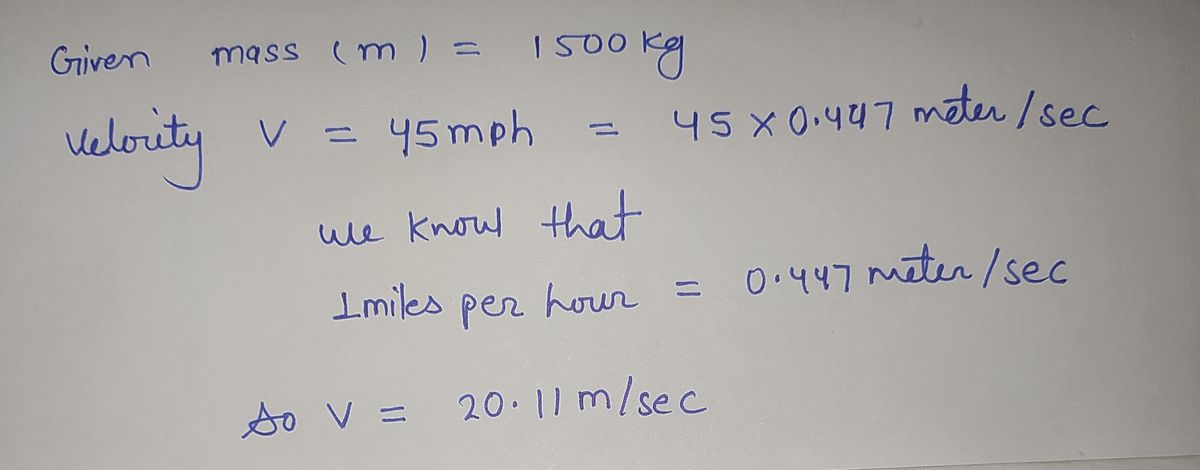 Given mass (m) = 1500 kg
Velocity V = 45mph = 45 x 0.447 meter/sec
we know that
1miles per hour = 0.447 meter/sec
So V = 20.11 m/sec